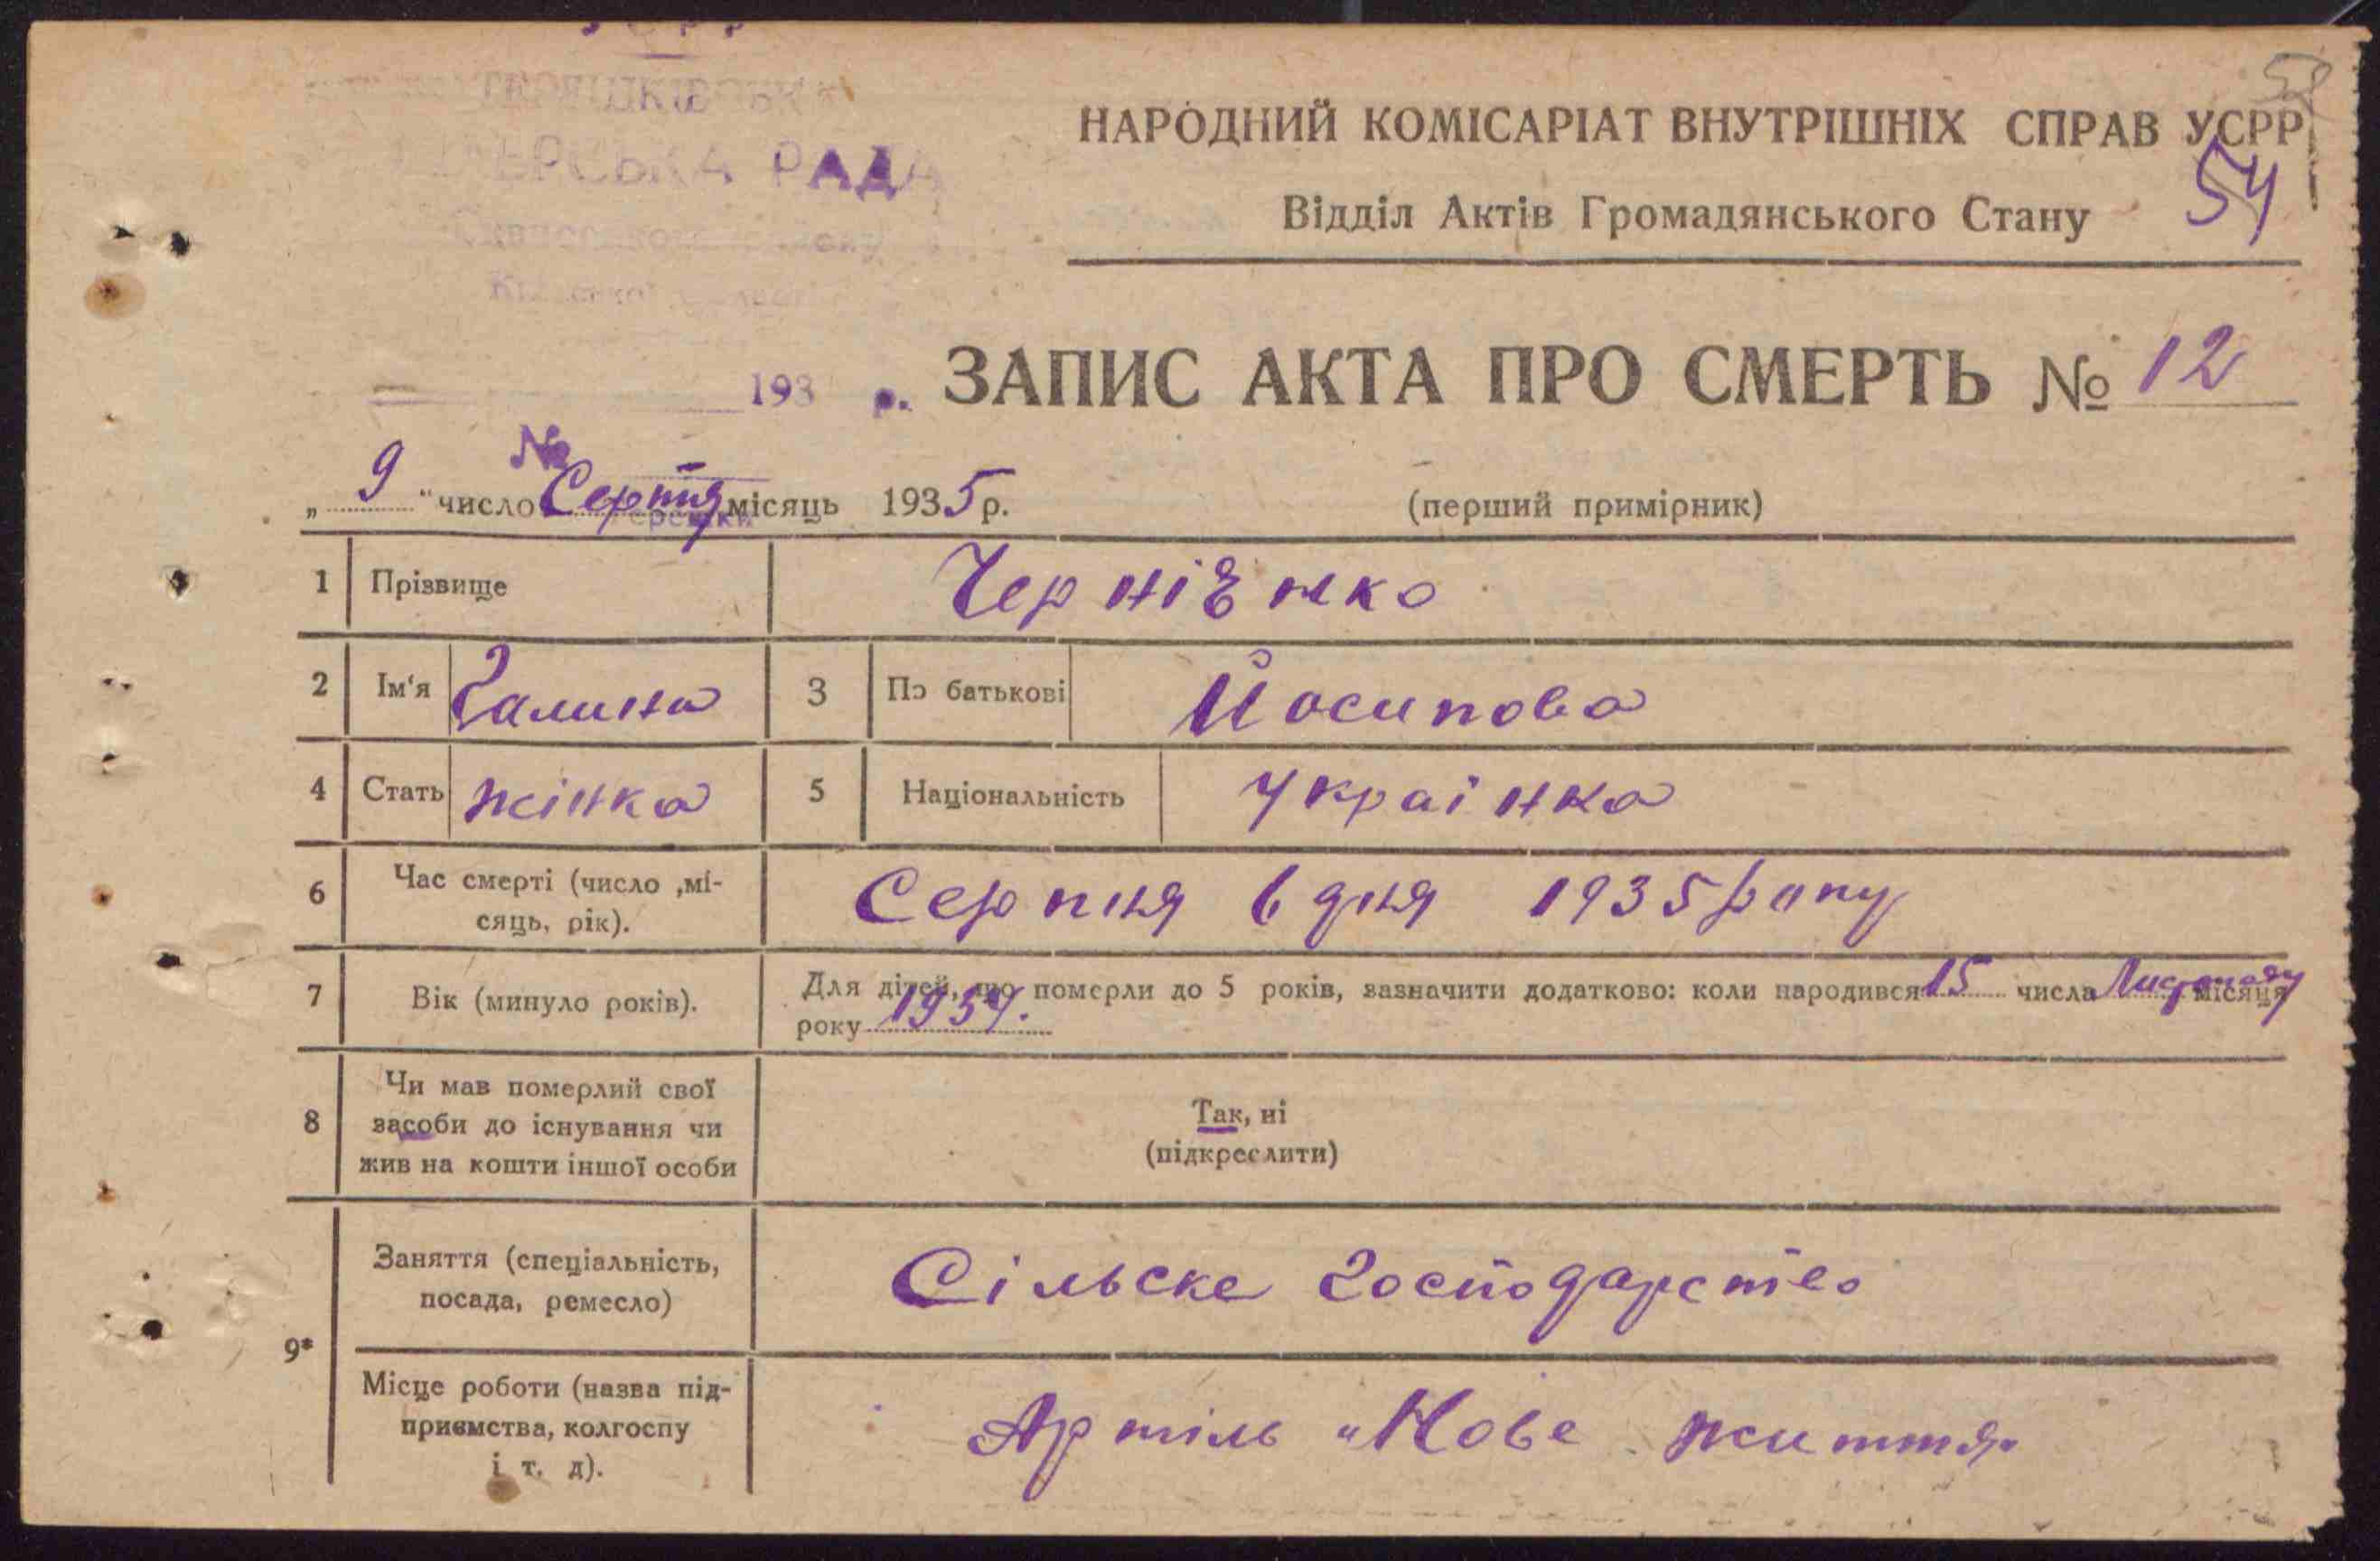 РАДА
НАРОДНИЙ КОМІСАРІАТ ВНУТРІШНІХ СПРАВ УСРР
54
Відділ Актів Громадянського Стану
193 р. ЗАПИС АКТА ПРО СМЕРТЬ № 12
№
„ 9 “ число Серпня місяць 1935 р. (перший примірник)
1 Прізвище Чернієнко
2 Ім'я Галина 3 По батькові Йосипова
4 Стать жінка 5 Національність Українка
6 Час смерті (число ,мі-
сяць, рік). Серпня 6 дня 1935 року
7 Вік (минуло років). Для дітей, що померли до 5 років, зазначити додатково: коли народився 15 числа Листопаду місяця
року 1934.
8 Чи мав померлий свої
засоби до існування чи
жив на кошти іншої особи
Так, ні
(підкреслити)
9*
Заняття (спеціальність,
посада, ремесло) Сільске господарство
Місце роботи (назва під-
приємства, колгоспу
і т. д). Артіль „Нове життя"